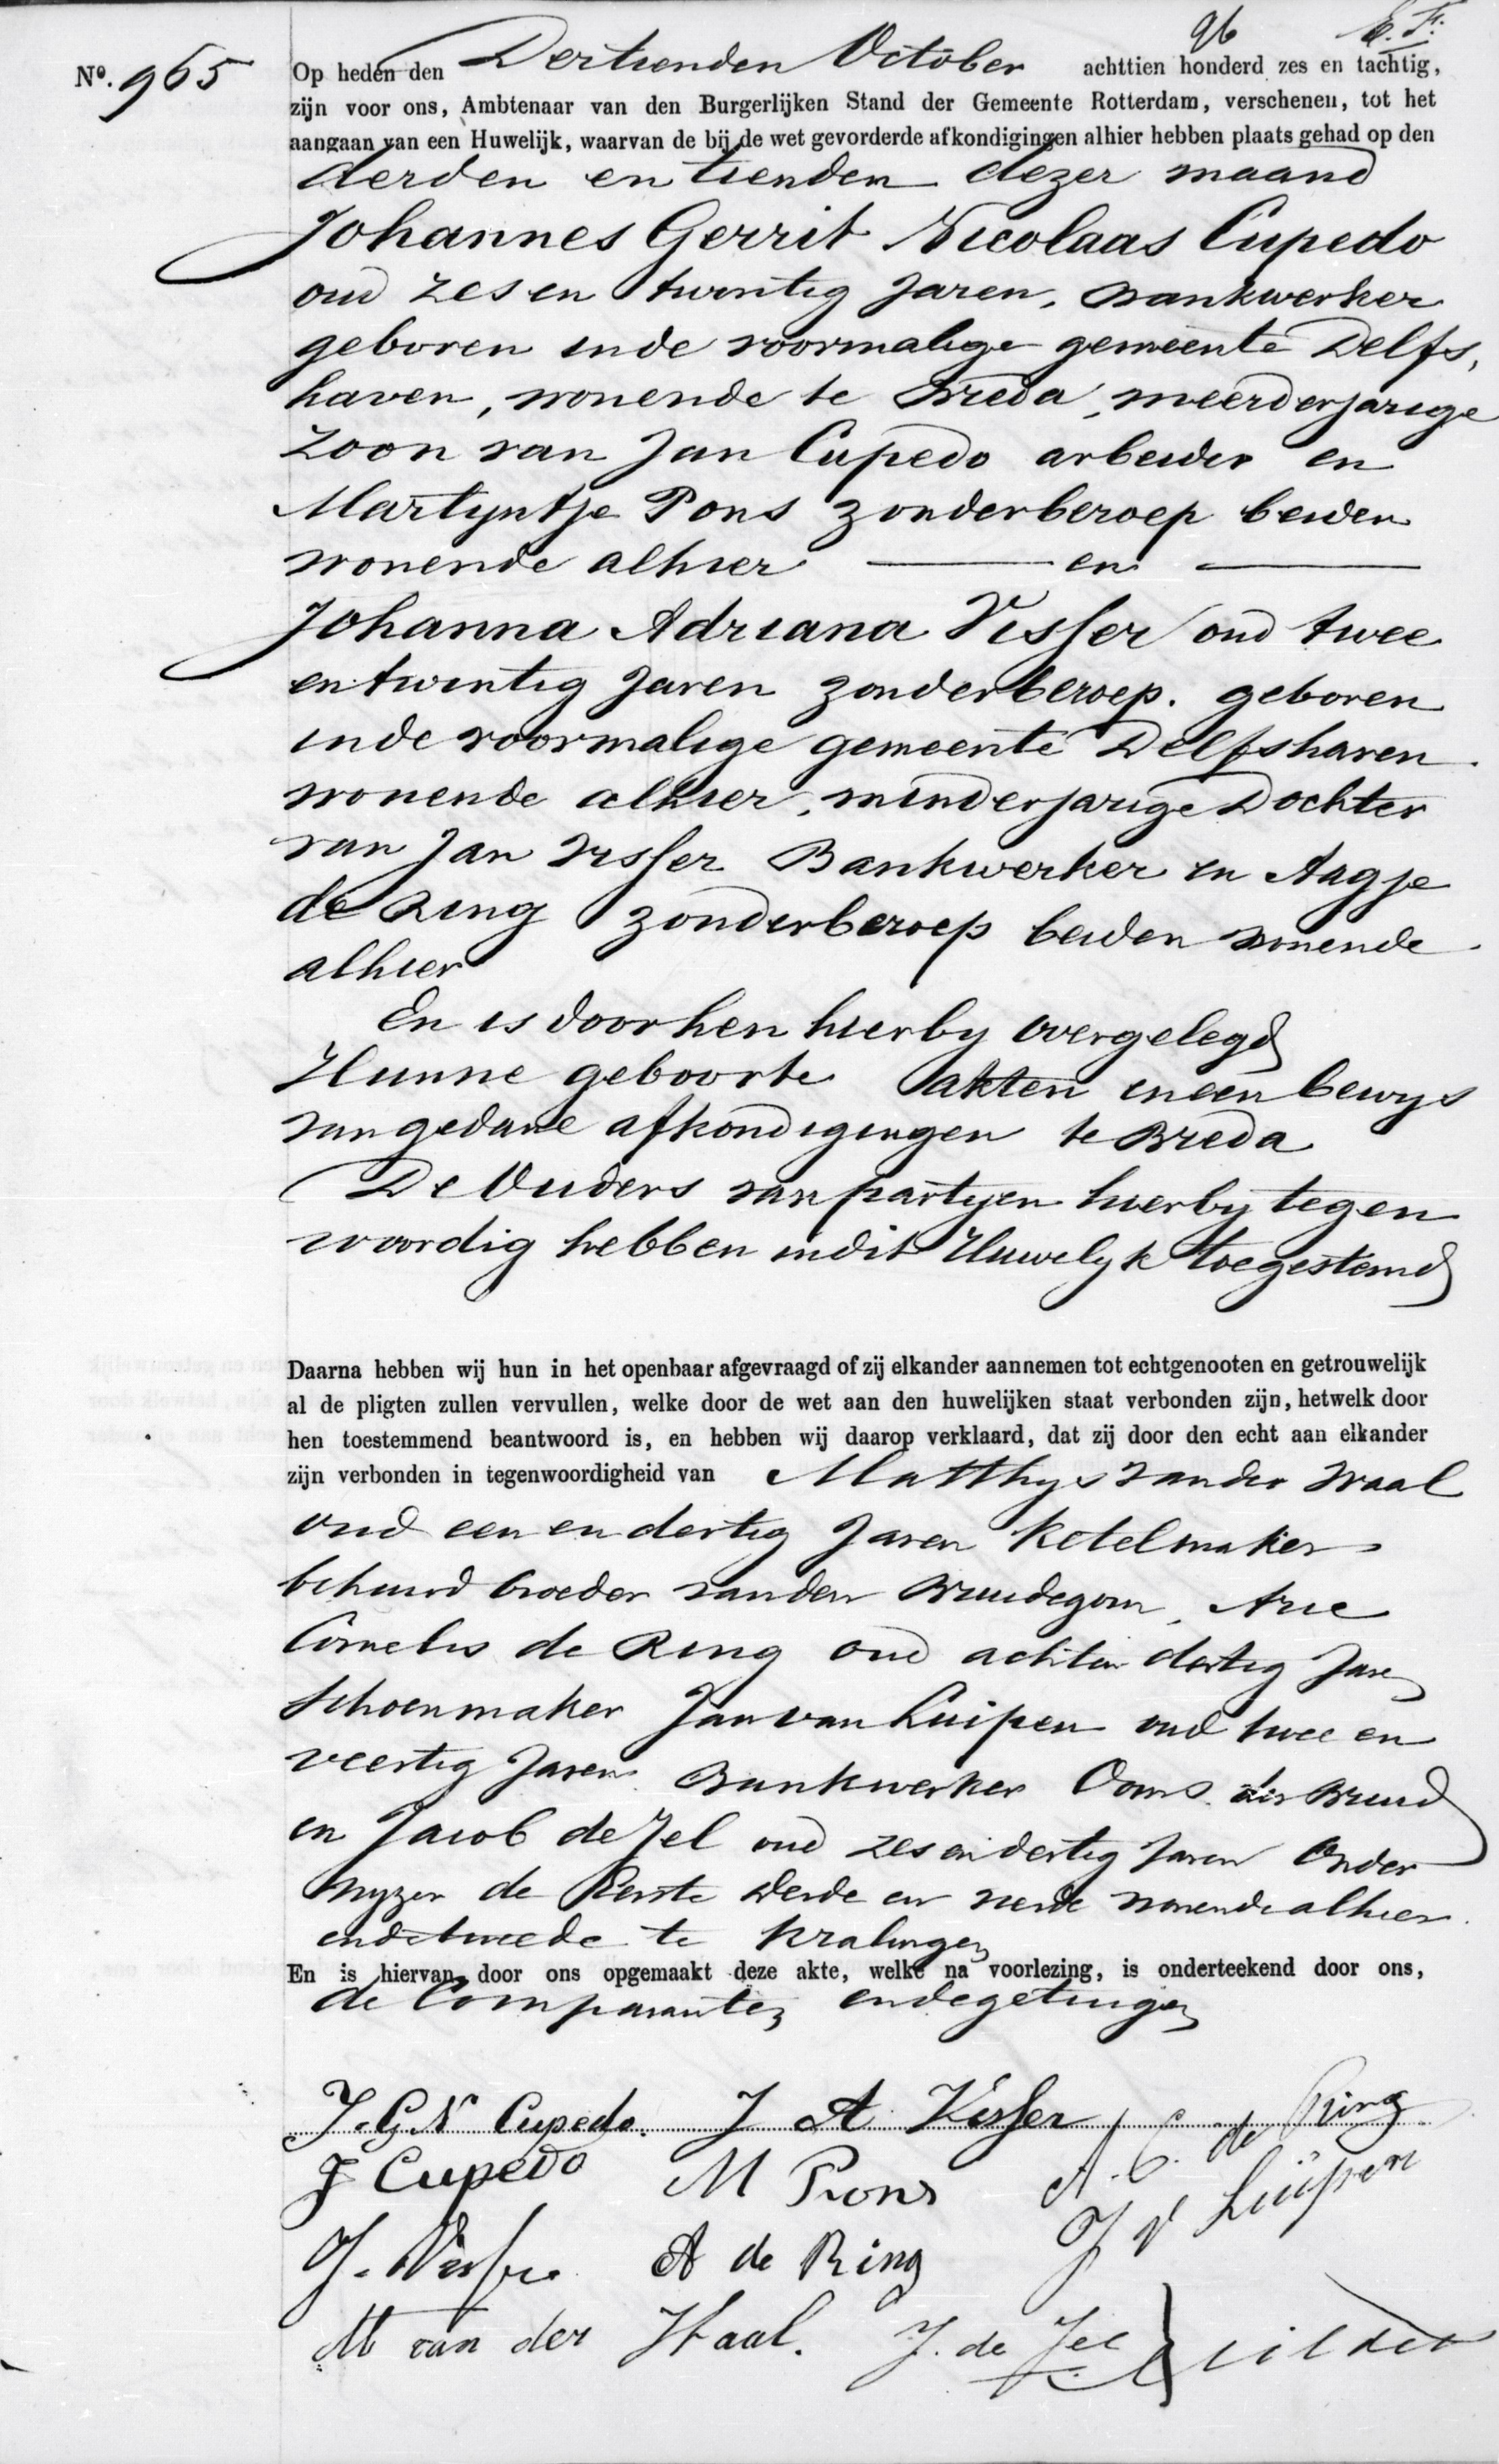 96 E. F.
Nº. 965 Op heden den Dertienden October achttien honderd zes en tachtig,
zijn voor ons, Ambtenaar van den Burgerlijken Stand der Gemeente Rotterdam, verschenen, tot het
aangaan van een Huwelijk, waarvan de bij de wet gevorderde afkondigingen alhier hebben plaats gehad op den
derden en tienden dezer maand
Johannes Gerrit Nicolaas Cupedo
oud zes en twintig Jaren, Bankwerker
geboren in de voormalige gemeente Delfs,
haven, wonende te Breda, meerderjarige
Zoon van Jan Cupedo arbeider en
Martyntje Pons zonder beroep beiden
wonende alhier — en —
Johanna Adriana Visser oud twee
en twintig Jaren zonder beroep. geboren
in de voormalige gemeente Delfshaven
wonende alhier, minderjarige Dochter
van Jan Visser Bankwerker en Aagje
de Ring zonder beroep beiden wonende
alhier
En is door hen hierby overgelegd
Hunne geboorte akten en een bewys
van gedane afkondigingen te Breda
De Ouders van partyen hierby tegen
woordig hebben in dit Huwelyk toegestemd
Daarna hebben wij hun in het openbaar afgevraagd of zij elkander aannemen tot echtgenooten en getrouwelijk
al de pligten zullen vervullen, welke door de wet aan den huwelijken staat verbonden zijn, hetwelk door
hen toestemmend beantwoord is, en hebben wij daarop verklaard, dat zij door den echt aan elkander
zijn verbonden in tegenwoordigheid van Matthys van der Waal
oud een en dertig Jaren Ketelmaker
behuwd broeder van den Bruidegom, Arie
Cornelis de Ring oud acht en dertig Jaren
Schoenmaker Jan van Luipen oud twee en
veertig Jaren Bankwerker Ooms der Bruid
en Jacob de Jel oud zes en dertig Jaren Onder
wyzer de Eerste derde en vierde wonende alhier
en de tweede te Kralingen
En is hiervan door ons opgemaakt deze akte, welke na voorlezing, is onderteekend door ons,
de Comparanten en de getuigen
J. G. N Cupedo. J A Visser A. C. de Ring
J Cupedo M Pons J V Luipen
J. Visser A de Ring
M van der Waal. J. de Jel